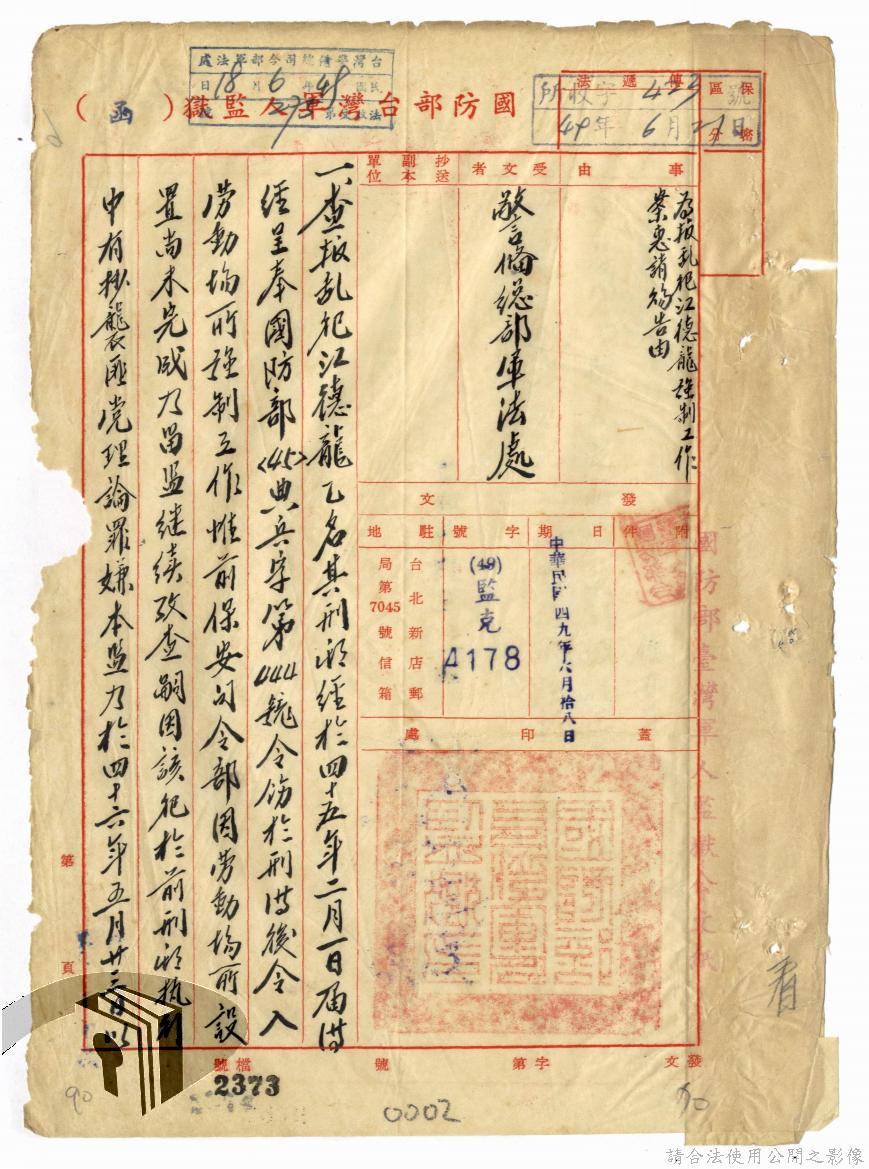 國防部台灣軍人監獄（函）
台灣警備總司令部軍法處
48年6月18日
收字 423 號
49年6月21日
保密區分
傳遞法
事由
為叛亂犯江德龍強制工作
案惠請賜告由
受文者
警備總部軍法處
抄送副本單位
發文
附件
日期
中華民國四九年六月拾八日
字號
(49)監克
4178
駐地
台北新店郵
局第7045號信箱
蓋印處
國防部臺灣軍人監獄公文紙
一、查叛亂犯江德龍乙名其刑期經於四十五年二月一日屆滿
經呈奉國防部〈45〉典兵字第444號令飭於刑滿後令入
勞動場所強制工作惟前保安司令部因勞動場所設
置尚未完成乃留監继续攷查嗣因該犯於前刑期执刑
中有抄襲匪党理論罪嫌本監乃於四十六年五月廿三日以
第 頁
看
發文 字第 號
檔號
2373
90
0002
90
請合法使用公開之影像